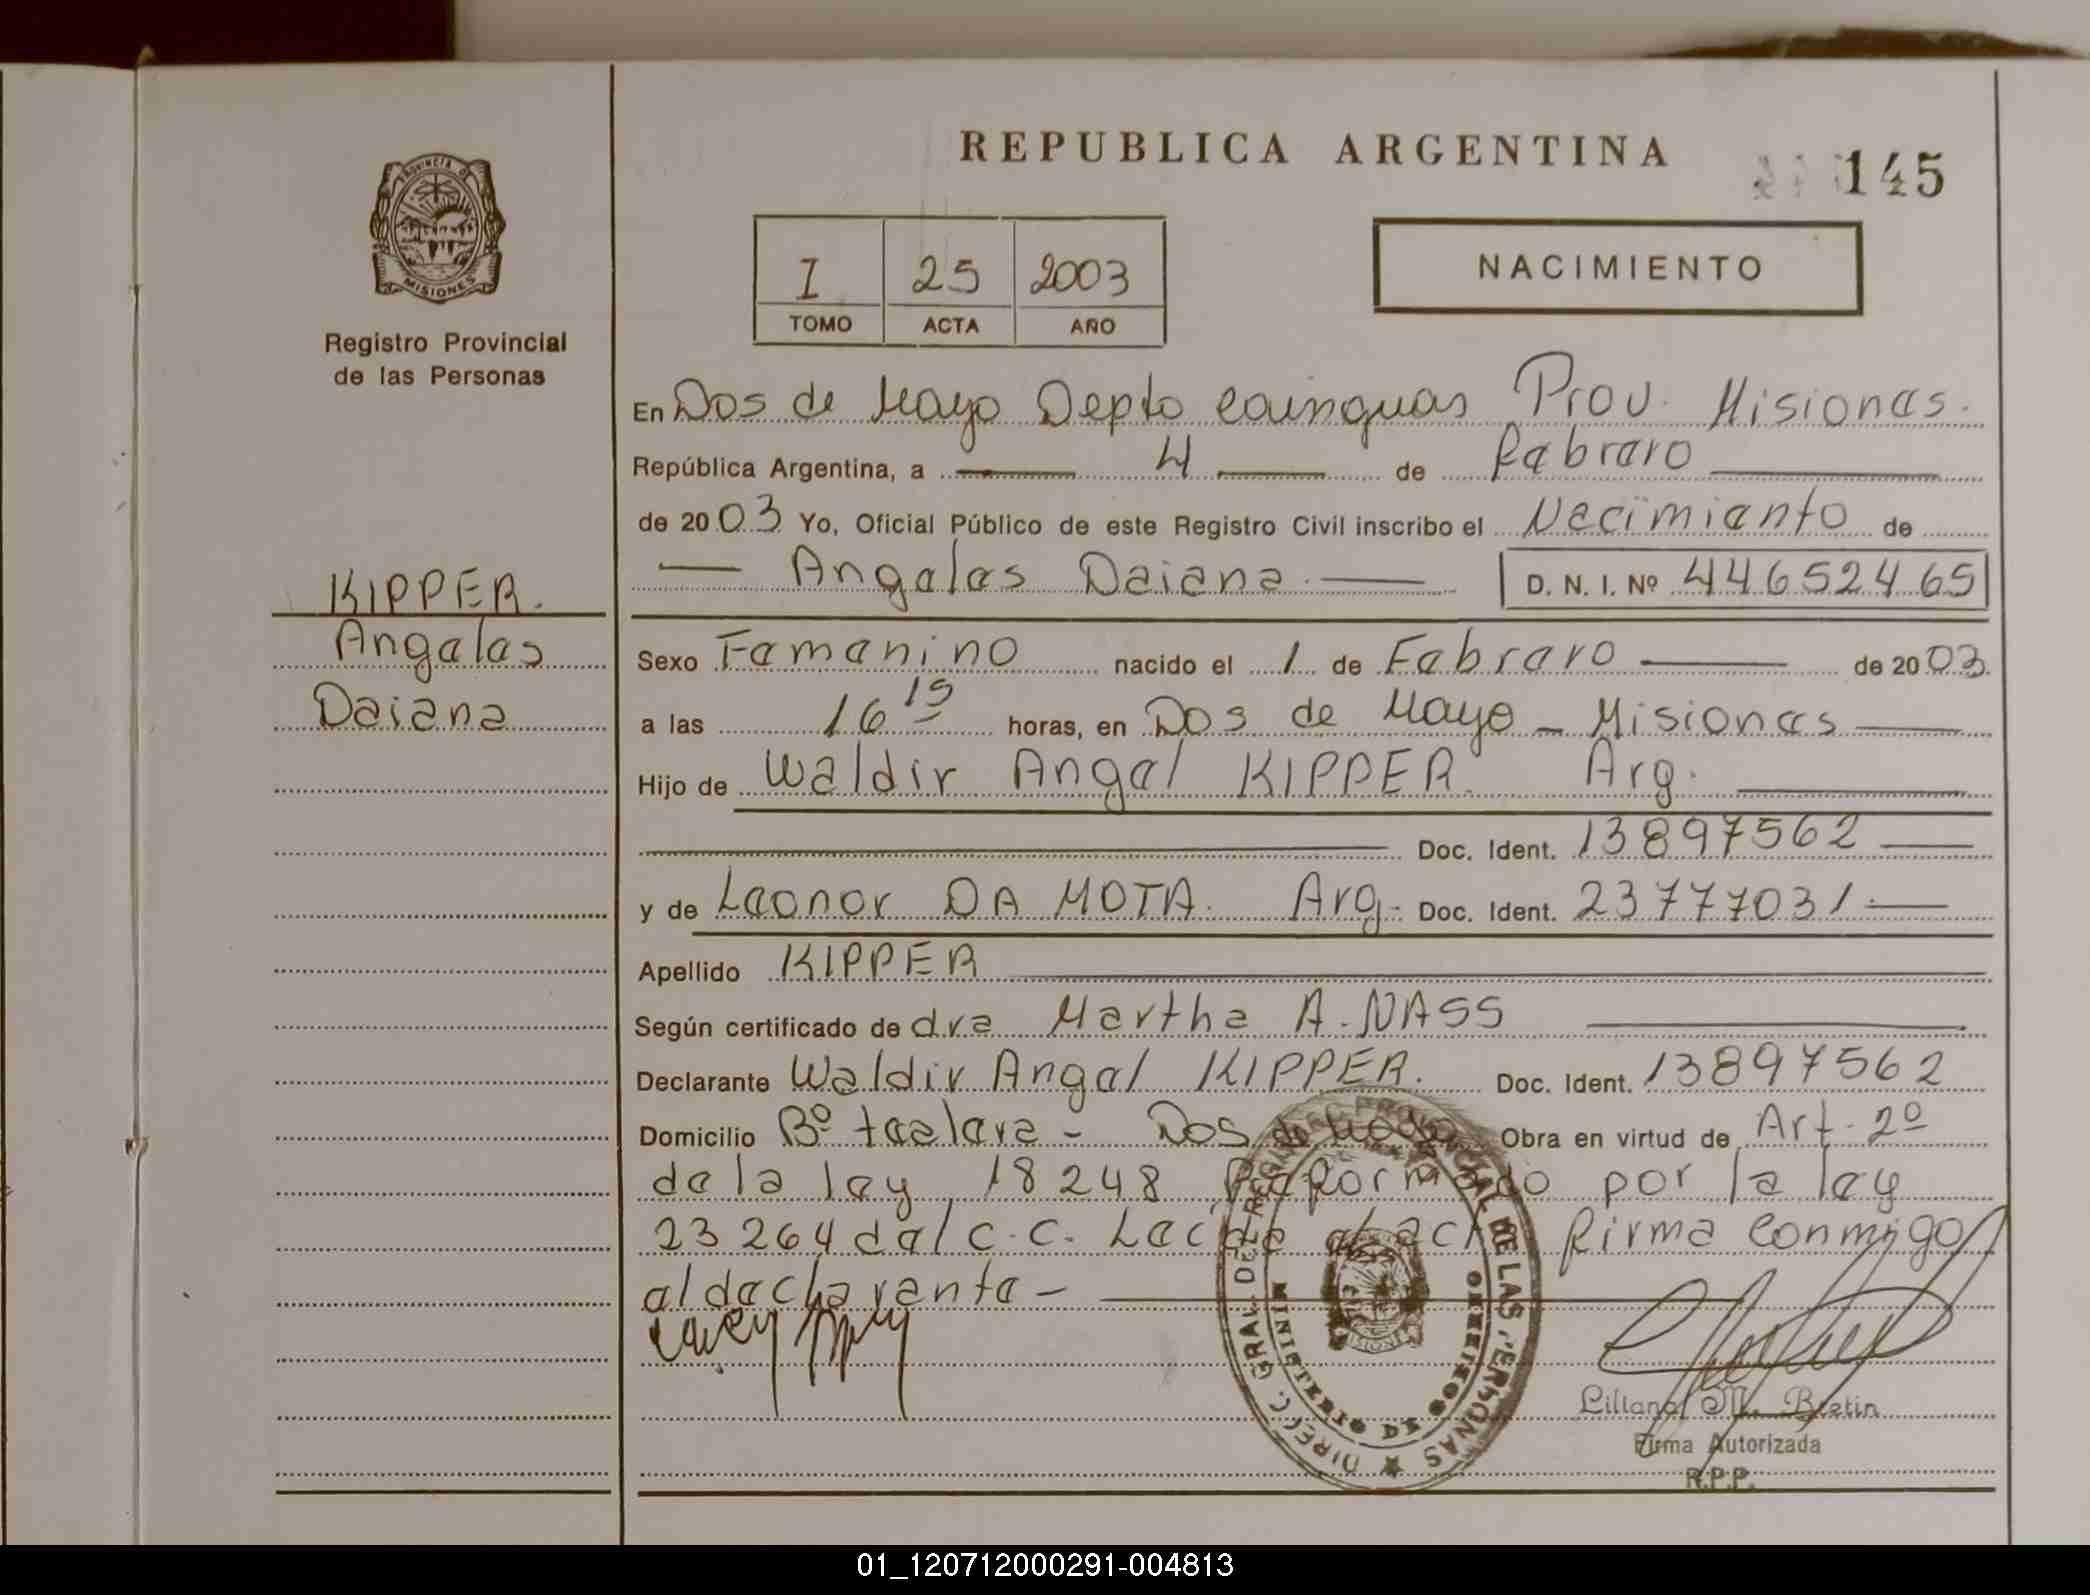 REPUBLICA ARGENTINA
145
PROVINCIA DE
MISIONES
Registro Provincial
de las Personas
I 25 2003
TOMO ACTA AÑO
NACIMIENTO
KIPPER.
Angeles
Daiana
En Dos de Mayo Depto Cainguas Prov. Misiones.
República Argentina, a 4 de Febrero
de 2003 Yo, Oficial Público de este Registro Civil inscribo el Nacimiento de
Angeles Daiana D. N. I. Nº 44652465
Sexo Femenino nacido el 1 de Febrero de 2003
a las 16 15 horas, en Dos de Mayo - Misiones
Hijo de Waldir Angel KIPPER. Arg.
Doc. Ident. 13897562
y de Leonor DA MOTA. Arg. Doc. Ident. 23777031.
Apellido KIPPER
Según certificado de dra Martha A. NASS
Declarante Waldir Angel KIPPER. Doc. Ident. 13897562
Domicilio Bº - Dos de Mayo Obra en virtud de Art. 2º
de la ley 18248 Reformado por la ley
23264 del C.C. Leída el acta firma conmigo
el declarante -
DIRECC. GRAL. DEL REGISTRO PROVINCIAL DE LAS PERSONAS
MINISTERIO DE GOBIERNO
Firma Autorizada
R.P.P.
01_120712000291-004813